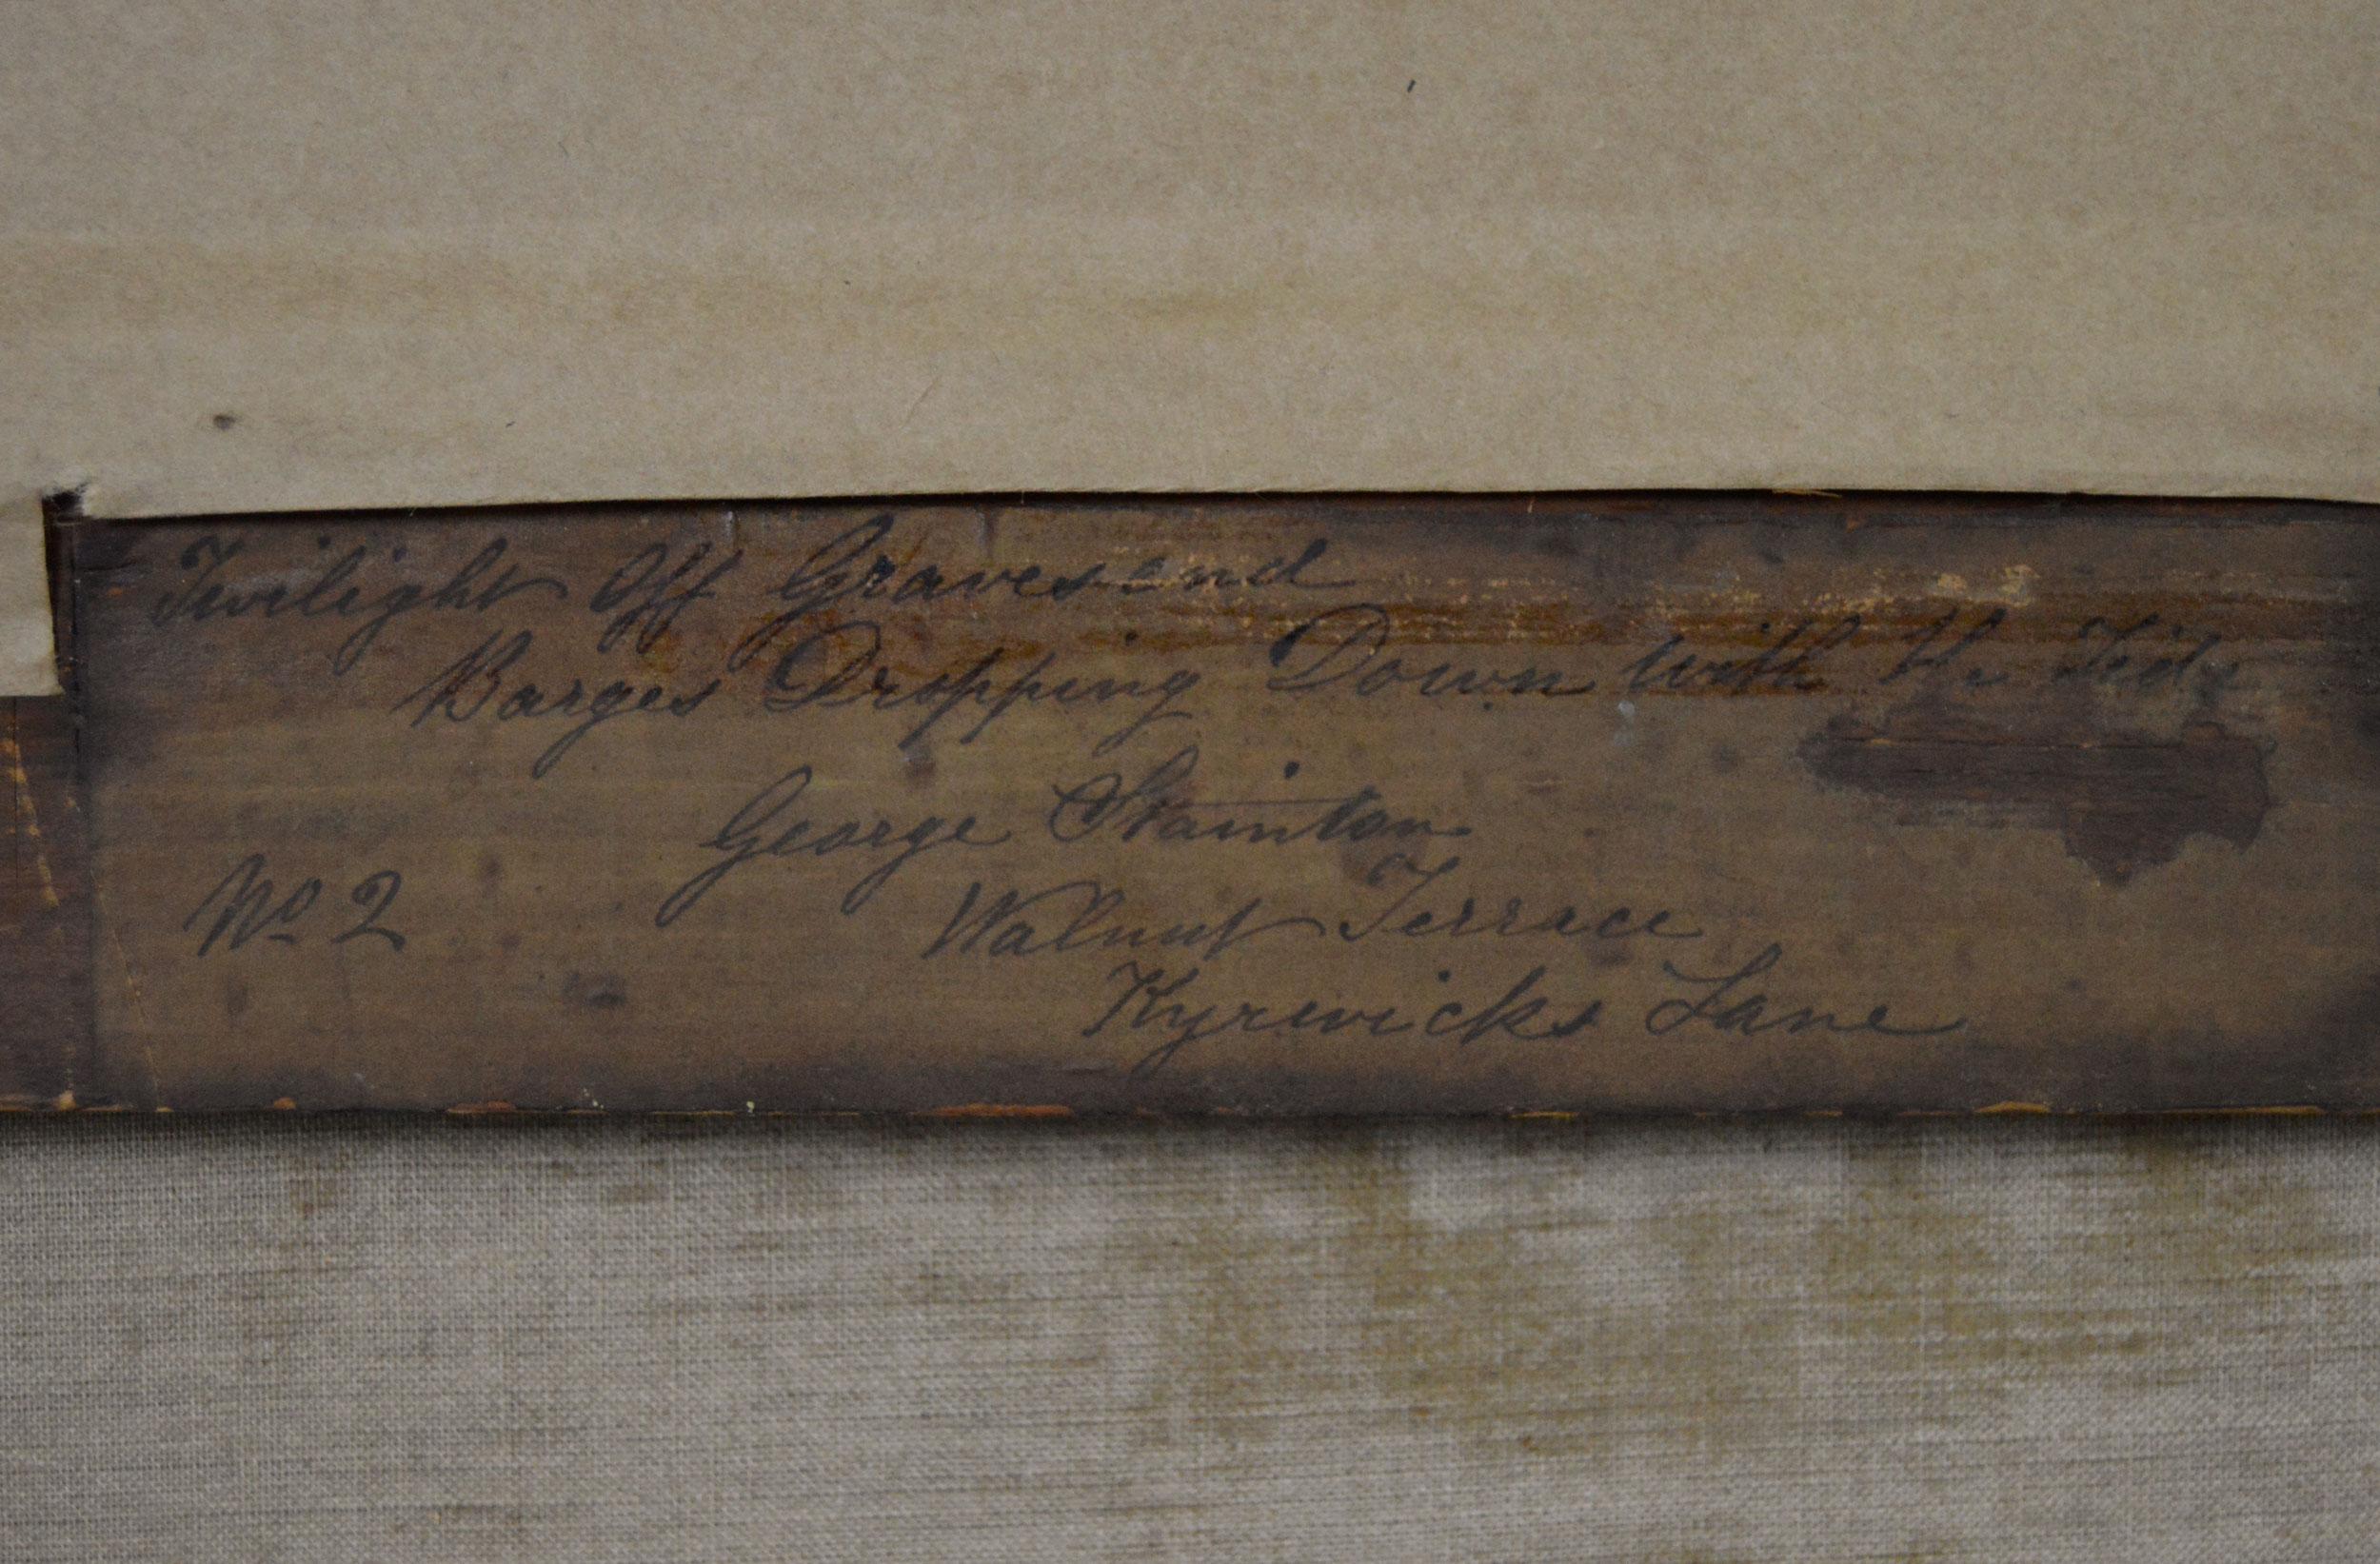 Twilight Off Gravesend
Barges Dropping Down with the Tide
George Stainton
No 2
Walnut Terrace
Kyrwicks Lane